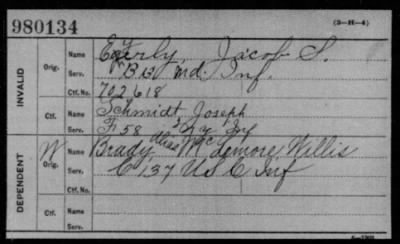 980134
(3-H-4)
INVALID
Orig. Name Jacob S.
Serv. B 13 Md. Inf.
Ctf. No. 702618
Ctf. Name Schmidt, Joseph
Serv. F 58 N.Y. Inf
DEPENDENT
W Orig. Name Brady, alias Willis
Serv. C 137 US C Inf
Ctf. Name
Serv.